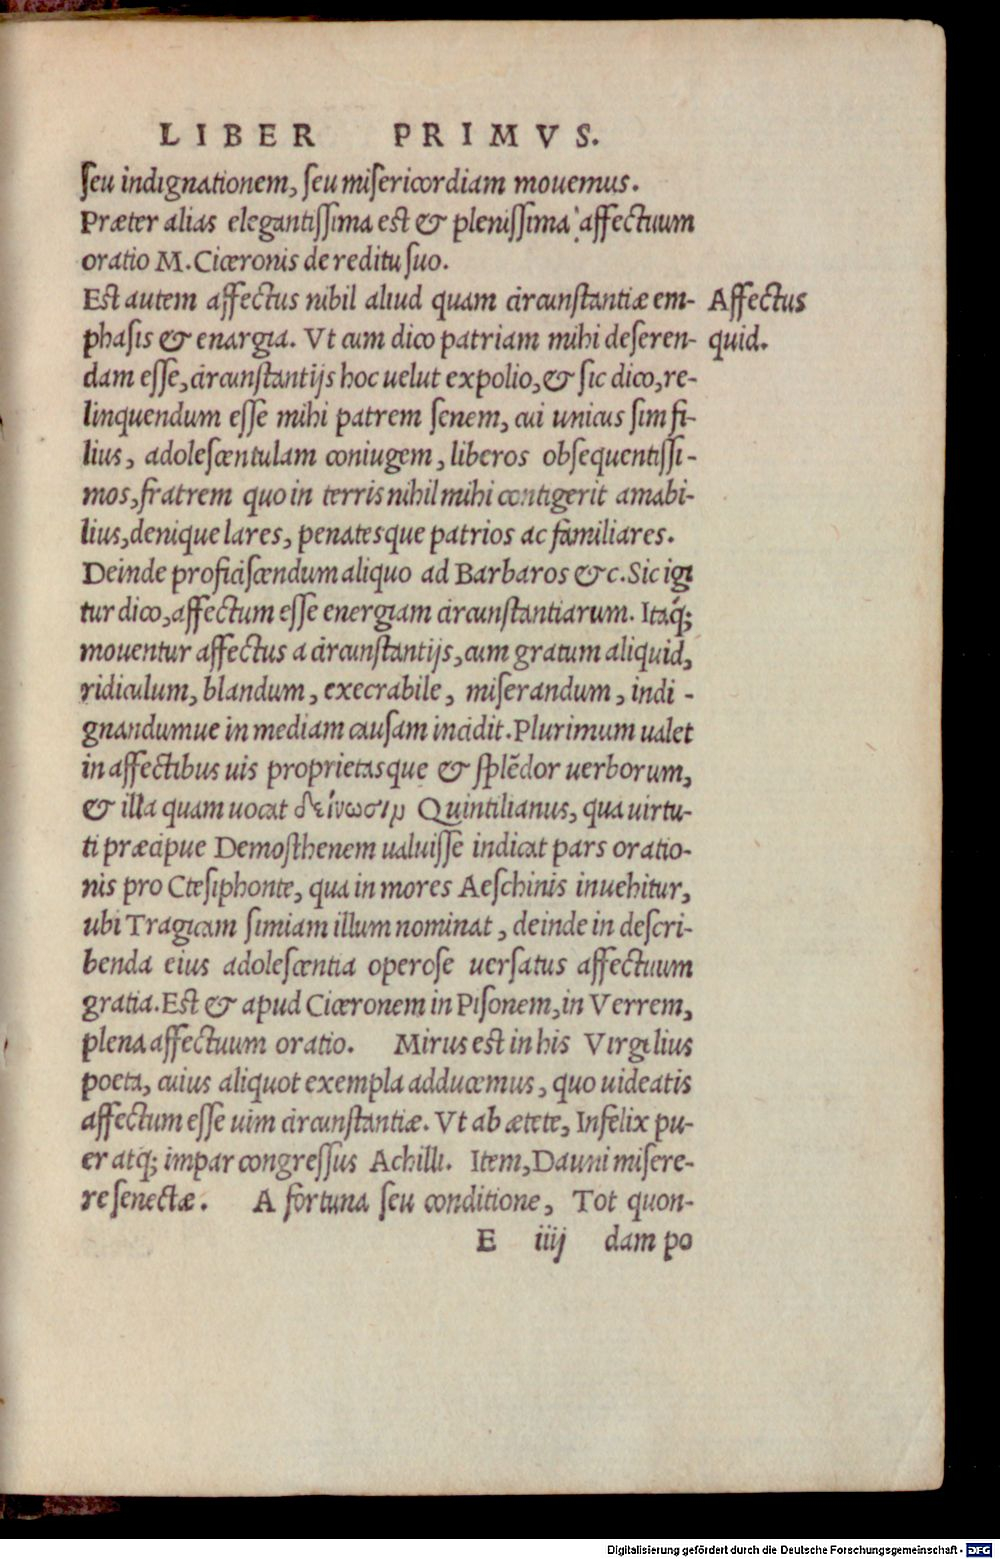 LIBER PRIMVS.
seu indignationem, seu misericordiam mouemus.
Præter alias elegantissima est & plenissima affectuum
oratio M. Ciceronis de reditu suo.
Est autem affectus nihil aliud quam circunstantiæ em-
phasis & enargia. Vt cum dico patriam mihi deseren-
dam esse, circunstantijs hoc uelut expolio, & sic dico, re-
linquendum esse mihi patrem senem, cui unicus sim fi-
lius, adolescentulam coniugem, liberos obsequentissi-
mos, fratrem quo in terris nihil mihi contigerit amabi-
lius, denique lares, penatesque patrios ac familiares.
Deinde proficiscendum aliquo ad Barbaros &c. Sic igi
tur dico, affectum esse energiam circunstantiarum. Itaq́;
mouentur affectus a circunstantijs, cum gratum aliquid,
ridiculum, blandum, execrabile, miserandum, indi-
gnandumue in mediam causam incidit. Plurimum ualet
in affectibus uis proprietasque & splēdor uerborum,
& illa quam uocat δείνωσιμ Quintilianus, qua uirtu-
ti præcipue Demosthenem ualuisse indicat pars oratio-
nis pro Ctesiphonte, qua in mores Aeschinis inuehitur,
ubi Tragicam simiam illum nominat, deinde in descri-
benda eius adolescentia operose uersatus affectuum
gratia. Est & apud Ciceronem in Pisonem, in Verrem,
plena affectuum oratio. Mirus est in his Virgilius
poeta, cuius aliquot exempla adducemus, quo uideatis
affectum esse uim circunstantiæ. Vt ab ætete, Infelix pu-
er atq; impar congressus Achilli. Item, Dauni misere-
re senectæ. A fortuna seu conditione, Tot quon-
E iiij dam po
Affectus
quid.
Digitalisierung gefördert durch die Deutsche Forschungsgemeinschaft - DFG